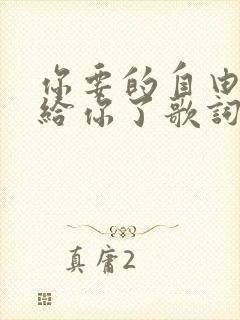 你要的自由
給你了歌詞
真庸2